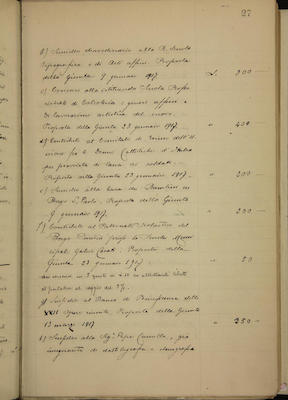 27
b) Sussidio straordinario alla R. Scuola
Tipografica e di Arti affini. Proposta
della Giunta 9 gennaio 1917 L. 300 —
c) Concorso alla istituenda Scuola Profes
di Calzoleria e generi affini e
di lavorazione artistica del cuoio.
Proposta della Giunta 23 gennaio 1917 " 400 —
d) Contributo al Comitato di
fra le Donne Cattoliche d'Italia
per provvista di lana ai soldati.
Proposta della Giunta 23 gennaio 1917 " 200 —
e) Sussidio alla Casa dei Bambini in
Borgo S. Paolo. Proposta della Giunta
9 gennaio 1917. " 200 —
f) Contributo al Patronato Scolastico del
Borgo presso la Scuola Muni
cipale Proposta della
Giunta 23 gennaio 1917 " 50
g) Sussidio al Banco di Beneficenza delle
XXII Opere riunite. Proposta della Giunta
13 marzo 1917 " 250 —
h) Sussidio alla Sig.ra Pepe Camilla, già
insegnante di dattilografia e stenografia